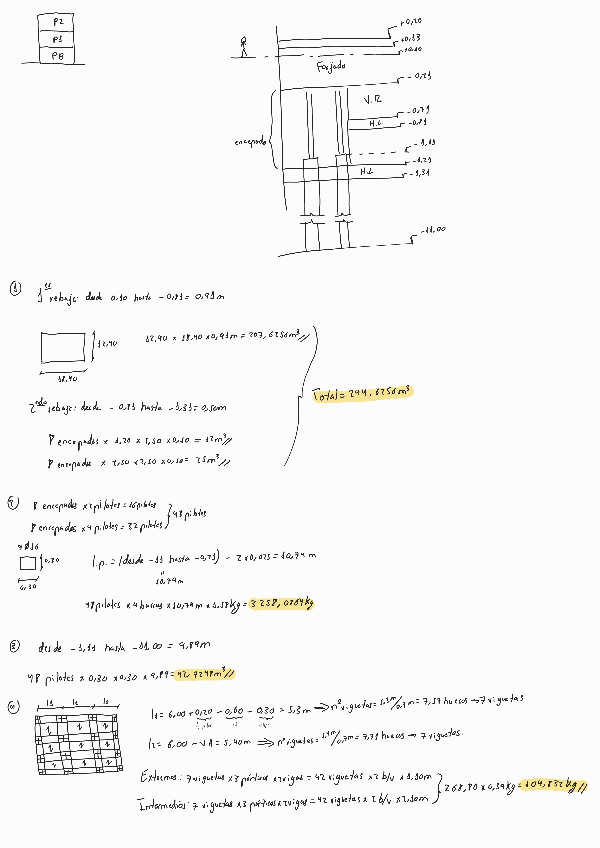 P2
P1
PB
+0,20
+0,13
+0,10
Forjado
-0,21
V.R
-0,71
H.L
-0,81
encepado
-1,11
-1,21
H.L
-1,31
-11,00
①
1er rebaje: desde 0,10 hasta -0,81 = 0,91m
12,40
18,40
12,40 x 18,40 x 0,91m = 207,6256m³
2ndo rebaje: desde -0,81 hasta -1,31 = 0,50m
8 encepados x 1,20 x 2,50 x 0,50 = 12m³
8 encepados x 2,50 x 2,50 x 0,50 = 25m³
Total = 244,6256m³
②
8 encepados x 2 pilotes = 16 pilotes
8 encepados x 4 pilotes = 32 pilotes
48 pilotes
4Ø16
0,30
0,30
l.p. = (desde -11 hasta -0,21) - 2 x 0,025 = 10,74m
10,79m
48 pilotes x 4 barras x 10,74m x 1,58kg = 3258,0864kg
③
desde -1,11 hasta -11,00 = 9,89m
48 pilotes x 0,30 x 0,30 x 9,89 = 42,7248m³
④
l1
l2
l1
l1 = 6,00 + 0,20 - 0,60 - 0,30 = 5,3m ⟹ nº viguetas = 5,3m/0,7m = 7,57 huecos → 7 viguetas
l2 = 6,00 - VA = 5,40m ⟹ nº viguetas = 5,4m/0,7m = 7,71 huecos → 7 viguetas.
Extremos: 7 viguetas x 3 pórticos x 2 vigas = 42 viguetas x 2 b/v x
Intermedios: 7 viguetas x 3 pórticos x 2 vigas = 42 viguetas x 2 b/v x
268,80 x 0,39kg = 104,832kg